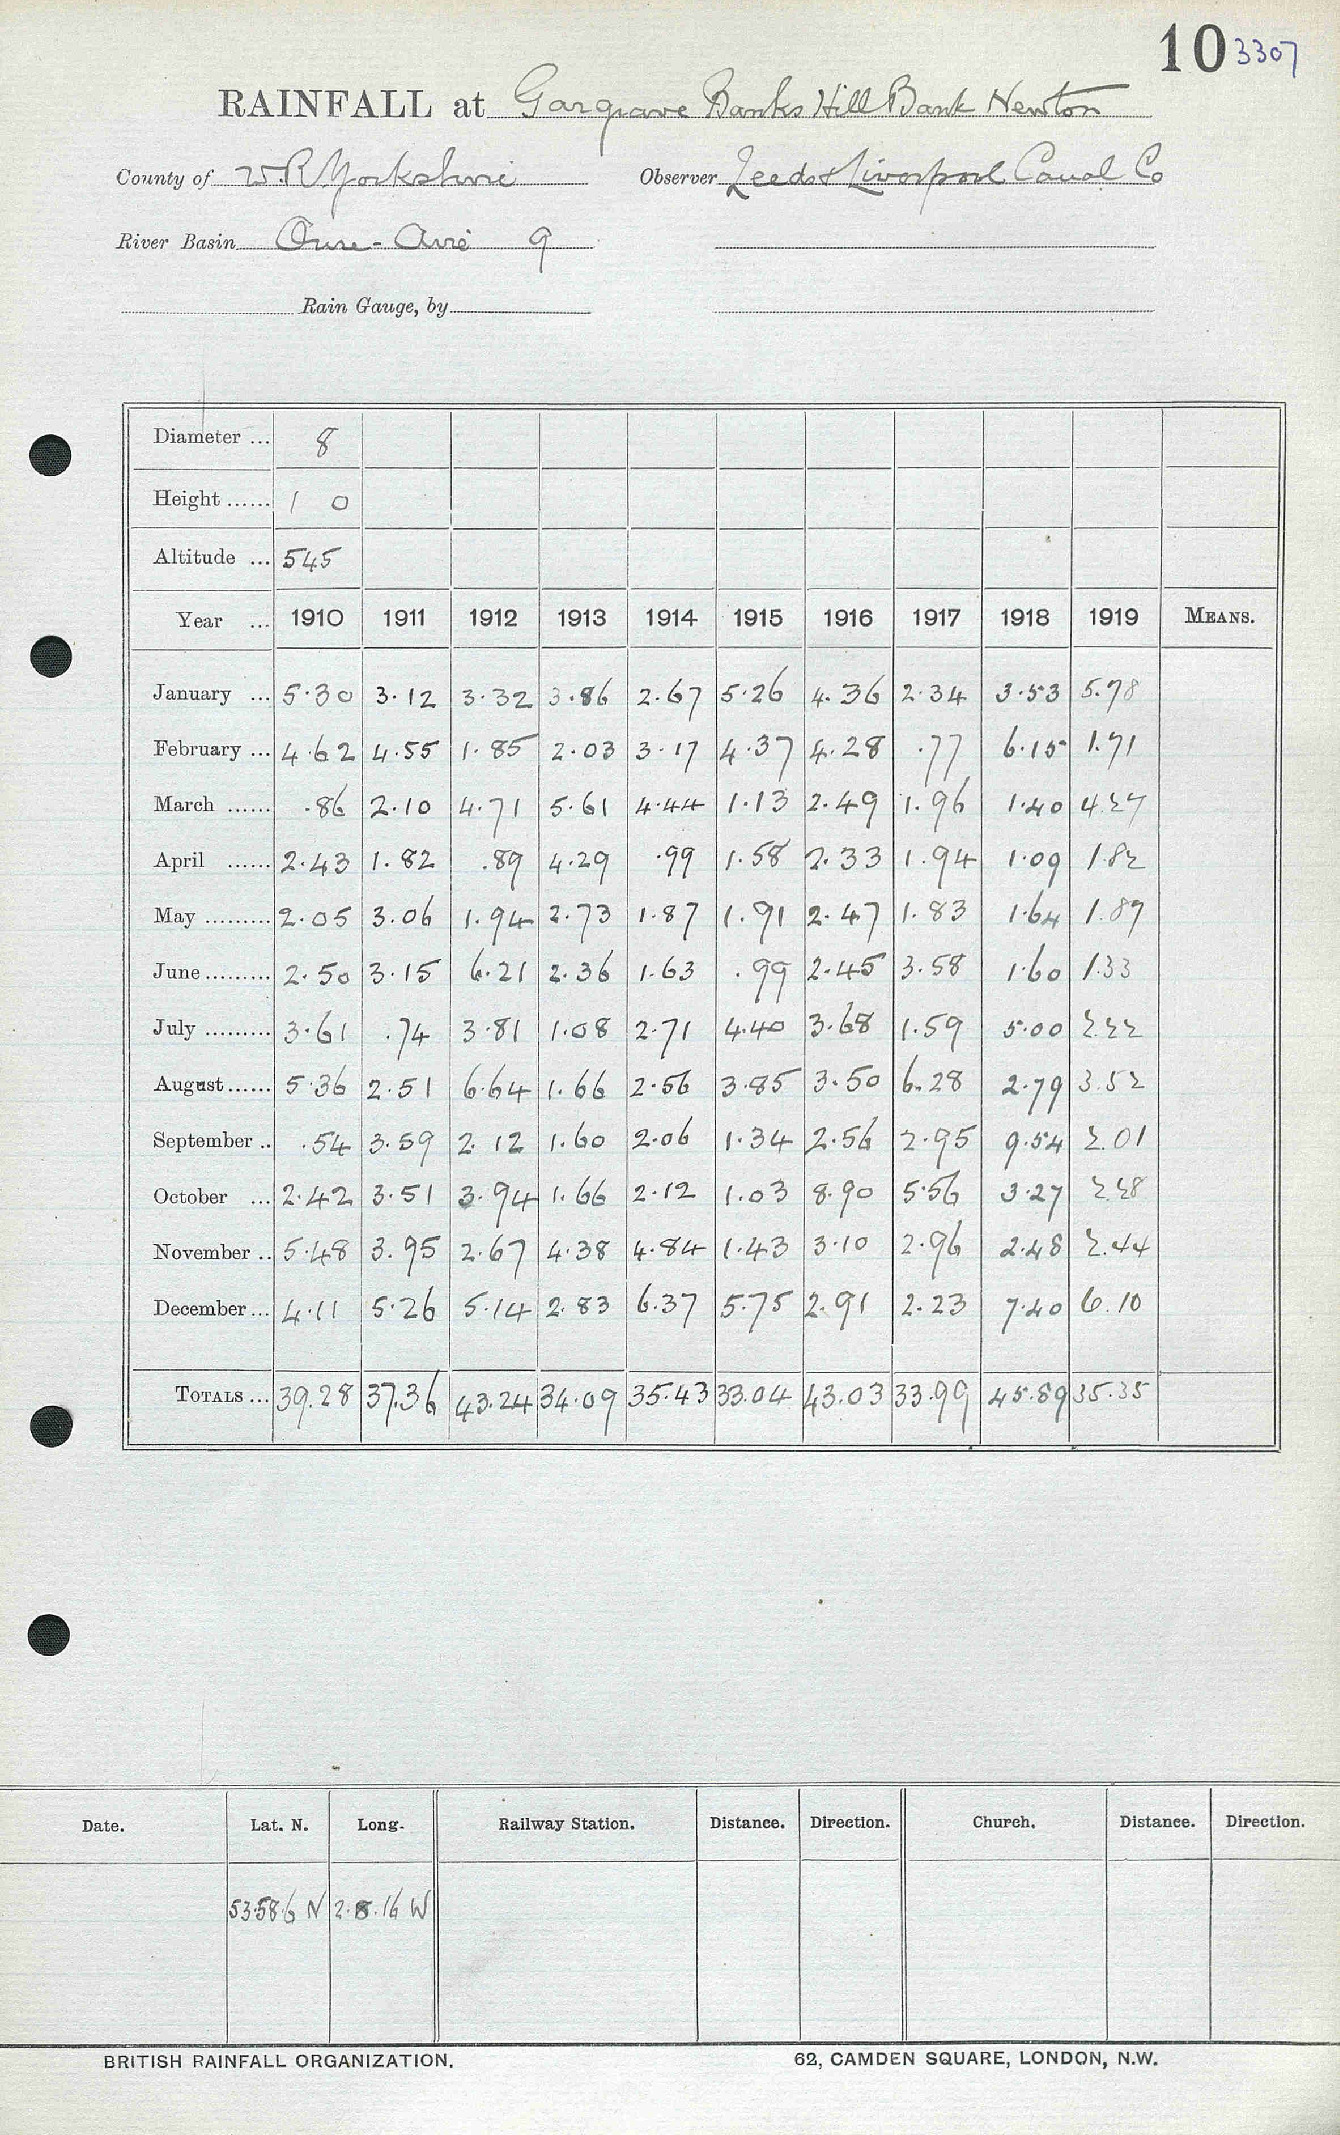 10 3307
RAINFALL at Gargrave Banks Hill Bank Newton
County of W.R Yorkshire Observer Leeds & Liverpool Canal Co
River Basin Ouse - Aire 9
Rain Gauge, by
Diameter ... 8
Height ...... 1 0
Altitude ... 545
Year ... 1910 1911 1912 1913 1914 1915 1916 1917 1918 1919 MEANS.
January ... 5.30 3.12 3.32 3.86 2.67 5.26 4.36 2.34 3.53 5.78
February ... 4.62 4.55 1.85 2.03 3.17 4.37 4.28 .77 6.15 1.71
March ...... .86 2.10 4.71 5.61 4.44 1.13 2.49 1.96 1.40 4.27
April ...... 2.43 1.82 .89 4.29 .99 1.58 2.33 1.94 1.09 1.82
May ......... 2.05 3.06 1.94 2.73 1.87 1.91 2.47 1.83 1.64 1.87
June ......... 2.50 3.15 6.21 2.36 1.63 .99 2.45 3.58 1.60 1.33
July ......... 3.61 .74 3.81 1.08 2.71 4.40 3.68 1.59 5.00 2.22
August ...... 5.36 2.51 6.64 1.66 2.56 3.85 3.50 6.28 2.79 3.52
September .. .54 3.59 2.12 1.60 2.06 1.34 2.56 2.95 9.54 2.01
October ... 2.42 3.51 3.94 1.66 2.12 1.03 8.90 5.56 3.27 2.28
November .. 5.48 3.95 2.67 4.38 4.84 1.43 3.10 2.96 2.48 2.44
December ... 4.11 5.26 5.14 2.83 6.37 5.75 2.91 2.23 7.40 6.10
TOTALS ... 39.28 37.36 43.24 34.09 35.43 33.04 43.03 33.99 45.89 35.35
Date. Lat. N. Long. Railway Station. Distance. Direction. Church. Distance. Direction.
53.58.6 N 2.8.16 W
BRITISH RAINFALL ORGANIZATION. 62, CAMDEN SQUARE, LONDON, N.W.